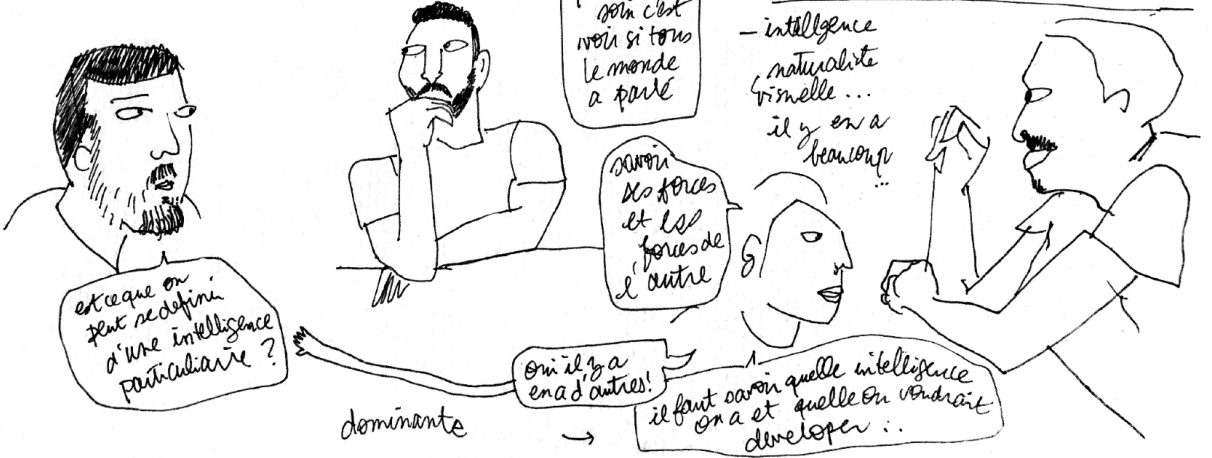 soin c'est
voir si tous
le monde
a parlé
— intellgence
naturaliste
visuelle...
il y en a
beaucoup
...
savoir
ses forces
et les
forces de
l'autre
est ce que on
peut se definir
d'une intelligence
particuliaire ?
oui il y a
en a d'autres !
il faut savoir quelle intelligence
on a et quelle on voudrait
developer ...
dominante →